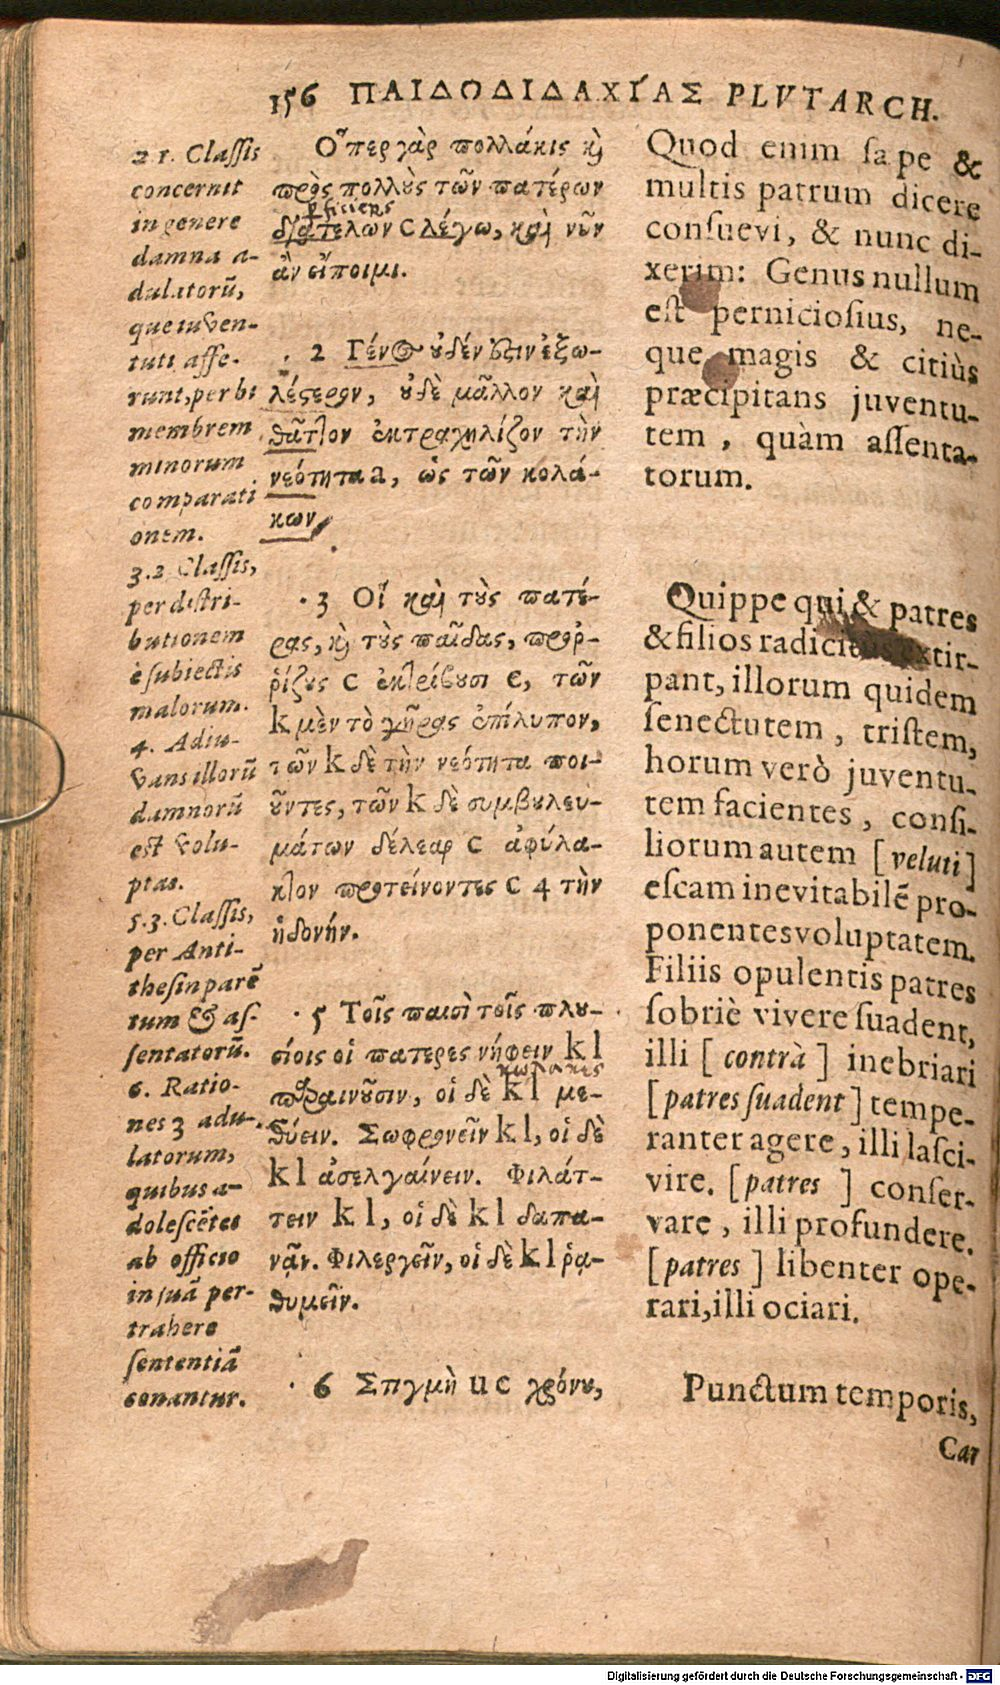 156 ΠΑΙΔΟΔΙΔΑΧΙΑΣ PLVTARCH.
2 1. Classis
concernit
in genere
damna a-
dulatorũ,
que iuven-
tuti affe-
runt, per bi
membrem
minorum
comparati
onem.
3. 2 Classis,
per distri-
butionem
è subiectis
malorum.
4. Adiu-
vans illorũ
damnorũ
est volu-
ptas.
5. 3. Classis,
per Anti-
thesin parẽ
tum & as-
sentatorũ.
6. Ratio-
nes 3 adu-
latorum,
quibus a-
dolescẽtes
ab officio
in suã per-
trahere
sententiã
conantur.
Ὅπερ γὰρ πολλάκις κὶ
πρὸς πολλȣ̀ς τῶν πατέρων
διατελῶν c λέγω, καὶ νῦν
ἂν εἴποιμι.
2 Γένος ȣ̓δέν ἐστιν ἐξω-
λέστερον, ȣ̓δὲ μᾶλλον καὶ
θᾶττον ἐκτραχηλίζον τὴν
νεότητα a, ὡς τῶν κολά-
κων,
3 Οἳ καὶ τȣ̀ς πατέ-
ρας, κὶ τȣ̀ς παῖδας, προρ-
ῥίζȣς c ἐκτρίβȣσι e, τῶν
k μὲν τὸ γῆρας ἐπίλυπον,
τῶν k δὲ τὴν νεότητα ποι-
ȣ͂ντες, τῶν k δὲ συμβȣλευ-
μάτων δέλεαρ c ἀφύλα-
κτον προτείνοντες c 4 τὴν
ἡδονήν.
5 Τοῖς παισὶ τοῖς πλȣ-
σίοις οἱ πατερες νήφειν k l
παραινȣ͂σιν, οἱ δὲ k l με-
θύειν. Σωφρονεῖν k l, οἱ δὲ
k l ἀσελγαίνειν. Φιλάτ-
τειν k l, οἱ δὲ k l δαπα-
νᾷν. Φιλεργεῖν, οἱ δὲ k l ῥᾳ-
θυμεῖν.
6 Στιγμὴ u c χρόνȣ,
Quod enim sæpe &
multis patrum dicere
consuevi, & nunc di-
xerim: Genus nullum
est perniciosius, ne-
que magis & citiùs
præcipitans juventu-
tem, quàm assenta-
torum.
Quippe qui & patres
& filios radicitus extir-
pant, illorum quidem
senectutem, tristem,
horum verò juventu-
tem facientes, consi-
liorum autem [veluti]
escam inevitabilẽ pro-
ponentes voluptatem.
Filiis opulentis patres
sobriè vivere suadent,
illi [contrà] inebriari
[patres suadent] tempe-
ranter agere, illi lasci-
vire. [patres] conser-
vare, illi profundere.
[patres] libenter ope-
rari, illi ociari.
Punctum temporis,
Digitalisierung gefördert durch die Deutsche Forschungsgemeinschaft - DFG